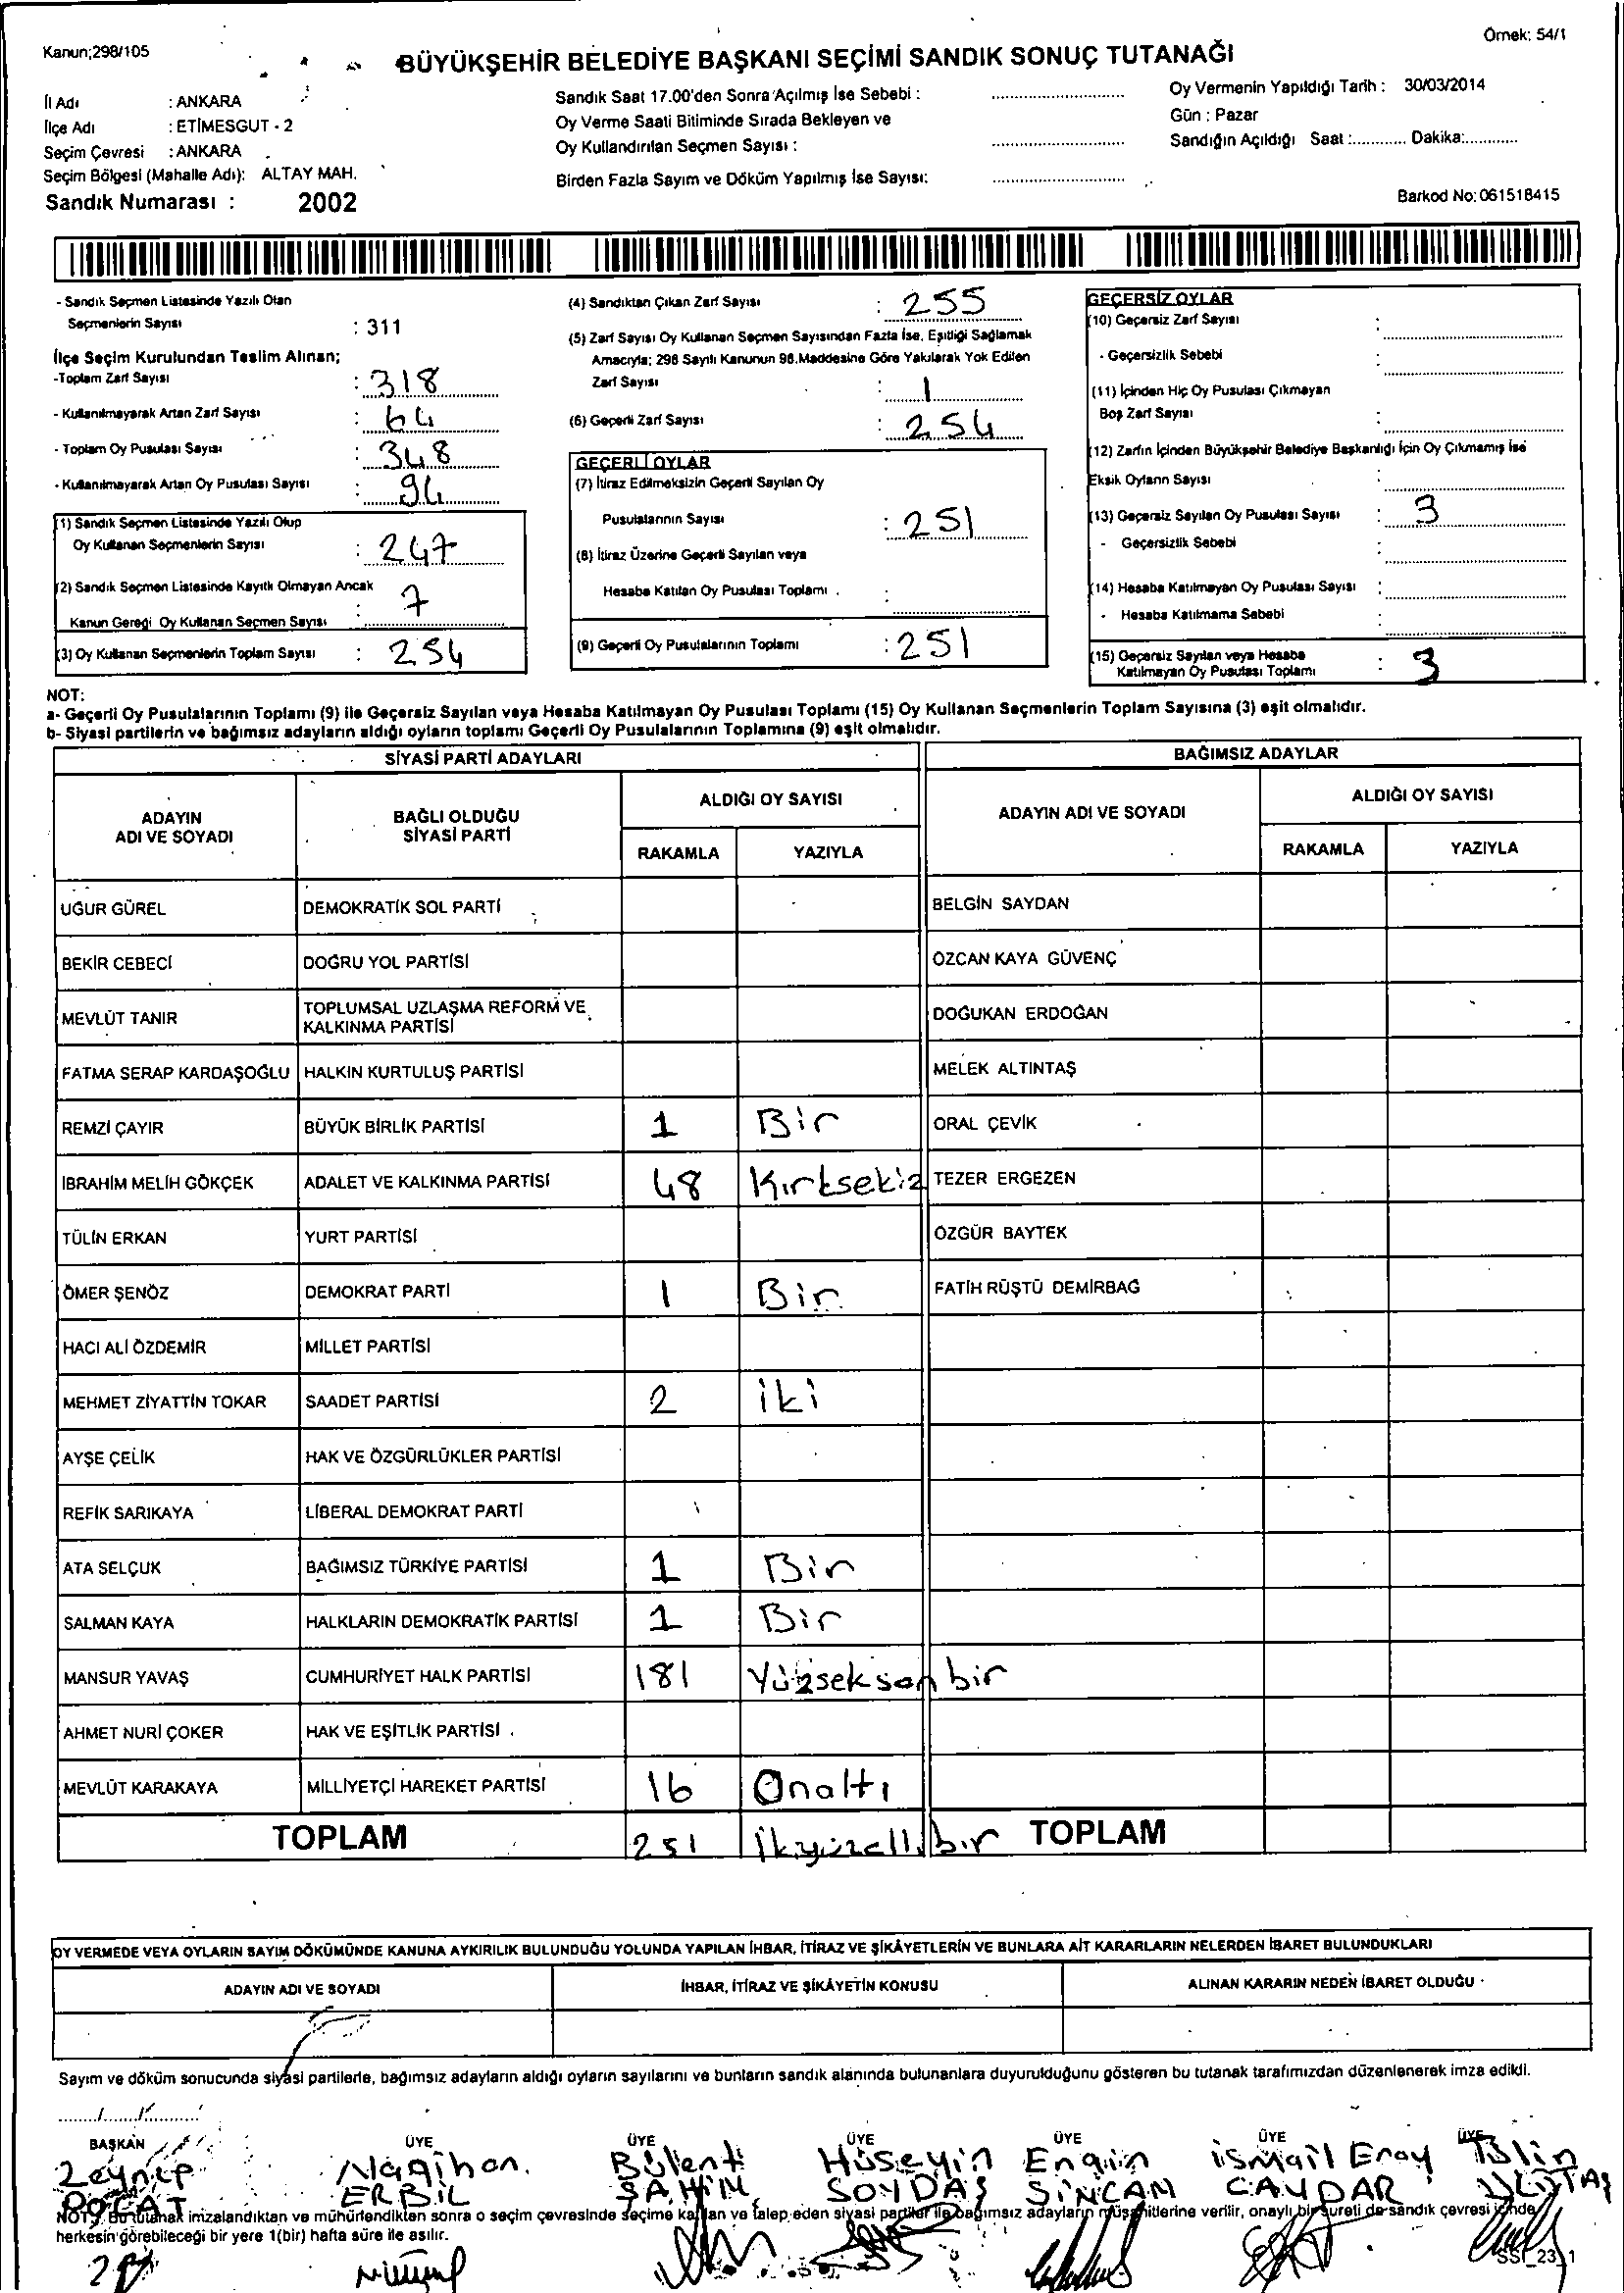 Kanun;298/105
Örnek: 54/1
BÜYÜKŞEHİR BELEDİYE BAŞKANI SEÇİMİ SANDIK SONUÇ TUTANAĞI
İl Adı : ANKARA
İlçe Adı : ETİMESGUT - 2
Seçim Çevresi : ANKARA
Seçim Bölgesi (Mahalle Adı): ALTAY MAH.
Sandık Numarası : 2002
Sandık Saat 17.00'den Sonra Açılmış İse Sebebi :
Oy Verme Saati Bitiminde Sırada Bekleyen ve
Oy Kullandırılan Seçmen Sayısı :
Birden Fazla Sayım ve Döküm Yapılmış İse Sayısı:
Oy Vermenin Yapıldığı Tarih : 30/03/2014
Gün : Pazar
Sandığın Açıldığı Saat :............ Dakika:............
Barkod No: 061518415
- Sandık Seçmen Listesinde Yazılı Olan
Seçmenlerin Sayısı : 311
İlçe Seçim Kurulundan Teslim Alınan;
-Toplam Zarf Sayısı : 318
- Kullanılmayarak Artan Zarf Sayısı : 64
- Toplam Oy Pusulası Sayısı : 348
- Kullanılmayarak Artan Oy Pusulası Sayısı : 94
(1) Sandık Seçmen Listesinde Yazılı Olup
Oy Kullanan Seçmenlerin Sayısı : 247
(2) Sandık Seçmen Listesinde Kayıtlı Olmayan Ancak
Kanun Gereği Oy Kullanan Seçmen Sayısı : 7
(3) Oy Kullanan Seçmenlerin Toplam Sayısı : 254
(4) Sandıktan Çıkan Zarf Sayısı : 255
(5) Zarf Sayısı Oy Kullanan Seçmen Sayısından Fazla İse, Eşitliği Sağlamak
Amacıyla; 298 Sayılı Kanunun 98.Maddesine Göre Yakılarak Yok Edilen
Zarf Sayısı : 1
(6) Geçerli Zarf Sayısı : 254
GEÇERLİ OYLAR
(7) İtiraz Edilmeksizin Geçerli Sayılan Oy
Pusulalarının Sayısı : 251
(8) İtiraz Üzerine Geçerli Sayılan veya
Hesaba Katılan Oy Pusulası Toplamı :
(9) Geçerli Oy Pusulalarının Toplamı : 251
GEÇERSİZ OYLAR
(10) Geçersiz Zarf Sayısı :
- Geçersizlik Sebebi :
(11) İçinden Hiç Oy Pusulası Çıkmayan
Boş Zarf Sayısı :
(12) Zarfın İçinden Büyükşehir Belediye Başkanlığı İçin Oy Çıkmamış İse
Eksik Oyların Sayısı :
(13) Geçersiz Sayılan Oy Pusulası Sayısı : 3
- Geçersizlik Sebebi :
(14) Hesaba Katılmayan Oy Pusulası Sayısı :
- Hesaba Katılmama Sebebi :
(15) Geçersiz Sayılan veya Hesaba
Katılmayan Oy Pusulası Toplamı : 3
NOT:
a- Geçerli Oy Pusulalarının Toplamı (9) ile Geçersiz Sayılan veya Hesaba Katılmayan Oy Pusulası Toplamı (15) Oy Kullanan Seçmenlerin Toplam Sayısına (3) eşit olmalıdır.
b- Siyasi partilerin ve bağımsız adayların aldığı oyların toplamı Geçerli Oy Pusulalarının Toplamına (9) eşit olmalıdır.
SİYASİ PARTİ ADAYLARI BAĞIMSIZ ADAYLAR
ADAYIN ADI VE SOYADI BAĞLI OLDUĞU SİYASİ PARTİ ALDIĞI OY SAYISI ADAYIN ADI VE SOYADI ALDIĞI OY SAYISI
RAKAMLA YAZIYLA RAKAMLA YAZIYLA
UĞUR GÜREL DEMOKRATİK SOL PARTİ BELGİN SAYDAN
BEKİR CEBECİ DOĞRU YOL PARTİSİ ÖZCAN KAYA GÜVENÇ
MEVLÜT TANIR TOPLUMSAL UZLAŞMA REFORM VE KALKINMA PARTİSİ DOĞUKAN ERDOĞAN
FATMA SERAP KARDAŞOĞLU HALKIN KURTULUŞ PARTİSİ MELEK ALTINTAŞ
REMZİ ÇAYIR BÜYÜK BİRLİK PARTİSİ 1 Bir ORAL ÇEVİK
İBRAHİM MELİH GÖKÇEK ADALET VE KALKINMA PARTİSİ 48 Kırksekiz TEZER ERGEZEN
TÜLİN ERKAN YURT PARTİSİ ÖZGÜR BAYTEK
ÖMER ŞENÖZ DEMOKRAT PARTİ 1 Bir FATİH RÜŞTÜ DEMİRBAĞ
HACI ALİ ÖZDEMİR MİLLET PARTİSİ
MEHMET ZİYATTİN TOKAR SAADET PARTİSİ 2 iki
AYŞE ÇELİK HAK VE ÖZGÜRLÜKLER PARTİSİ
REFİK SARIKAYA LİBERAL DEMOKRAT PARTİ
ATA SELÇUK BAĞIMSIZ TÜRKİYE PARTİSİ 1 Bir
SALMAN KAYA HALKLARIN DEMOKRATİK PARTİSİ 1 Bir
MANSUR YAVAŞ CUMHURİYET HALK PARTİSİ 181 Yüzseksanbir
AHMET NURİ ÇOKER HAK VE EŞİTLİK PARTİSİ
MEVLÜT KARAKAYA MİLLİYETÇİ HAREKET PARTİSİ 16 Onaltı
TOPLAM 251 İkiyüzellibir TOPLAM
OY VERMEDE VEYA OYLARIN SAYIM DÖKÜMÜNDE KANUNA AYKIRILIK BULUNDUĞU YOLUNDA YAPILAN İHBAR, İTİRAZ VE ŞİKÂYETLERİN VE BUNLARA AİT KARARLARIN NELERDEN İBARET BULUNDUKLARI
ADAYIN ADI VE SOYADI İHBAR, İTİRAZ VE ŞİKÂYETİN KONUSU ALINAN KARARIN NEDEN İBARET OLDUĞU
Sayım ve döküm sonucunda siyasi partilerle, bağımsız adayların aldığı oyların sayılarını ve bunların sandık alanında bulunanlara duyurulduğunu gösteren bu tutanak tarafımızdan düzenlenerek imza edildi.
......../......../............
BAŞKAN ÜYE ÜYE ÜYE ÜYE ÜYE ÜYE
Zeynep Nagihan Bülent Hüseyin Engin ismail Eray Tülin
POLAT ERBİL ŞAHİN SOYDAŞ SİNCAN ÇAYDAR
NOT: Bu tutanak imzalandıktan ve mühürlendikten sonra o seçim çevresinde seçime katılan ve talep eden siyasi partiler ile bağımsız adayların müşahitlerine verilir, onaylı bir sureti de sandık çevresi içinde
herkesin görebileceği bir yere 1(bir) hafta süre ile asılır.